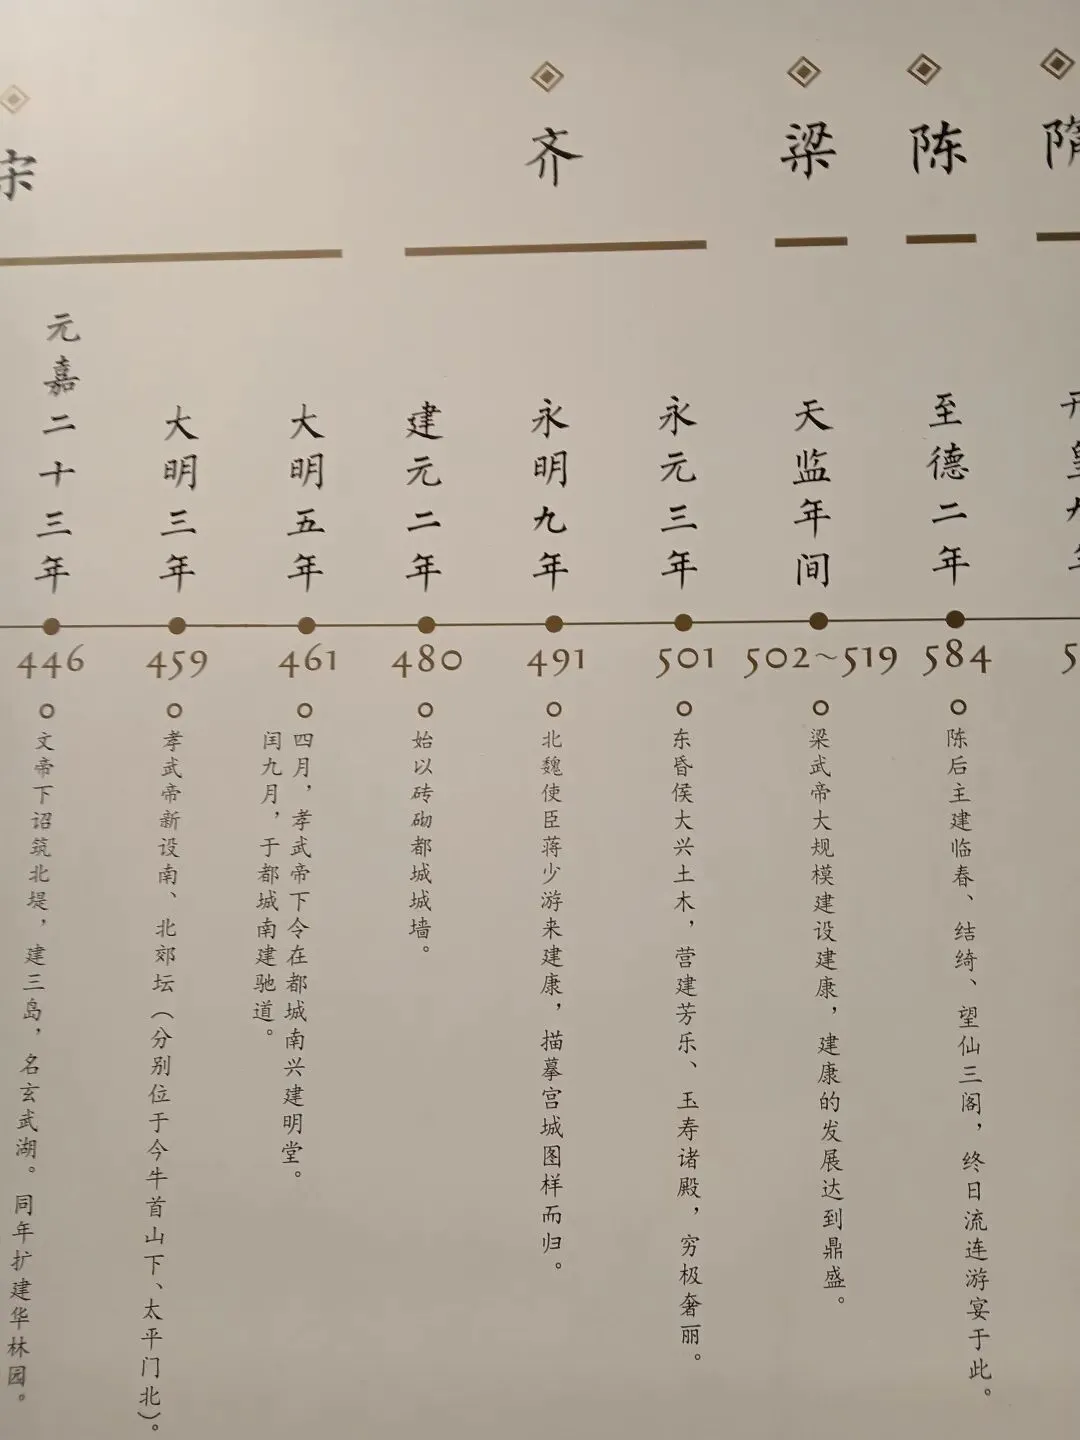 宋
齐
梁
陈
隋
元嘉二十三年
大明三年
大明五年
建元二年
永明九年
永元三年
天监年间
至德二年
446
459
461
480
491
501
502~519
584
文帝下诏筑北堤，建三岛，名玄武湖。同年扩建华林园。
孝武帝新设南、北郊坛（分别位于今牛首山下、太平门北）。
四月，孝武帝下令在都城南兴建明堂。
闰九月，于都城南建驰道。
始以砖砌都城城墙。
北魏使臣蒋少游来建康，描摹宫城图样而归。
东昏侯大兴土木，营建芳乐、玉寿诸殿，穷极奢丽。
梁武帝大规模建设建康，建康的发展达到鼎盛。
陈后主建临春、结绮、望仙三阁，终日流连游宴于此。